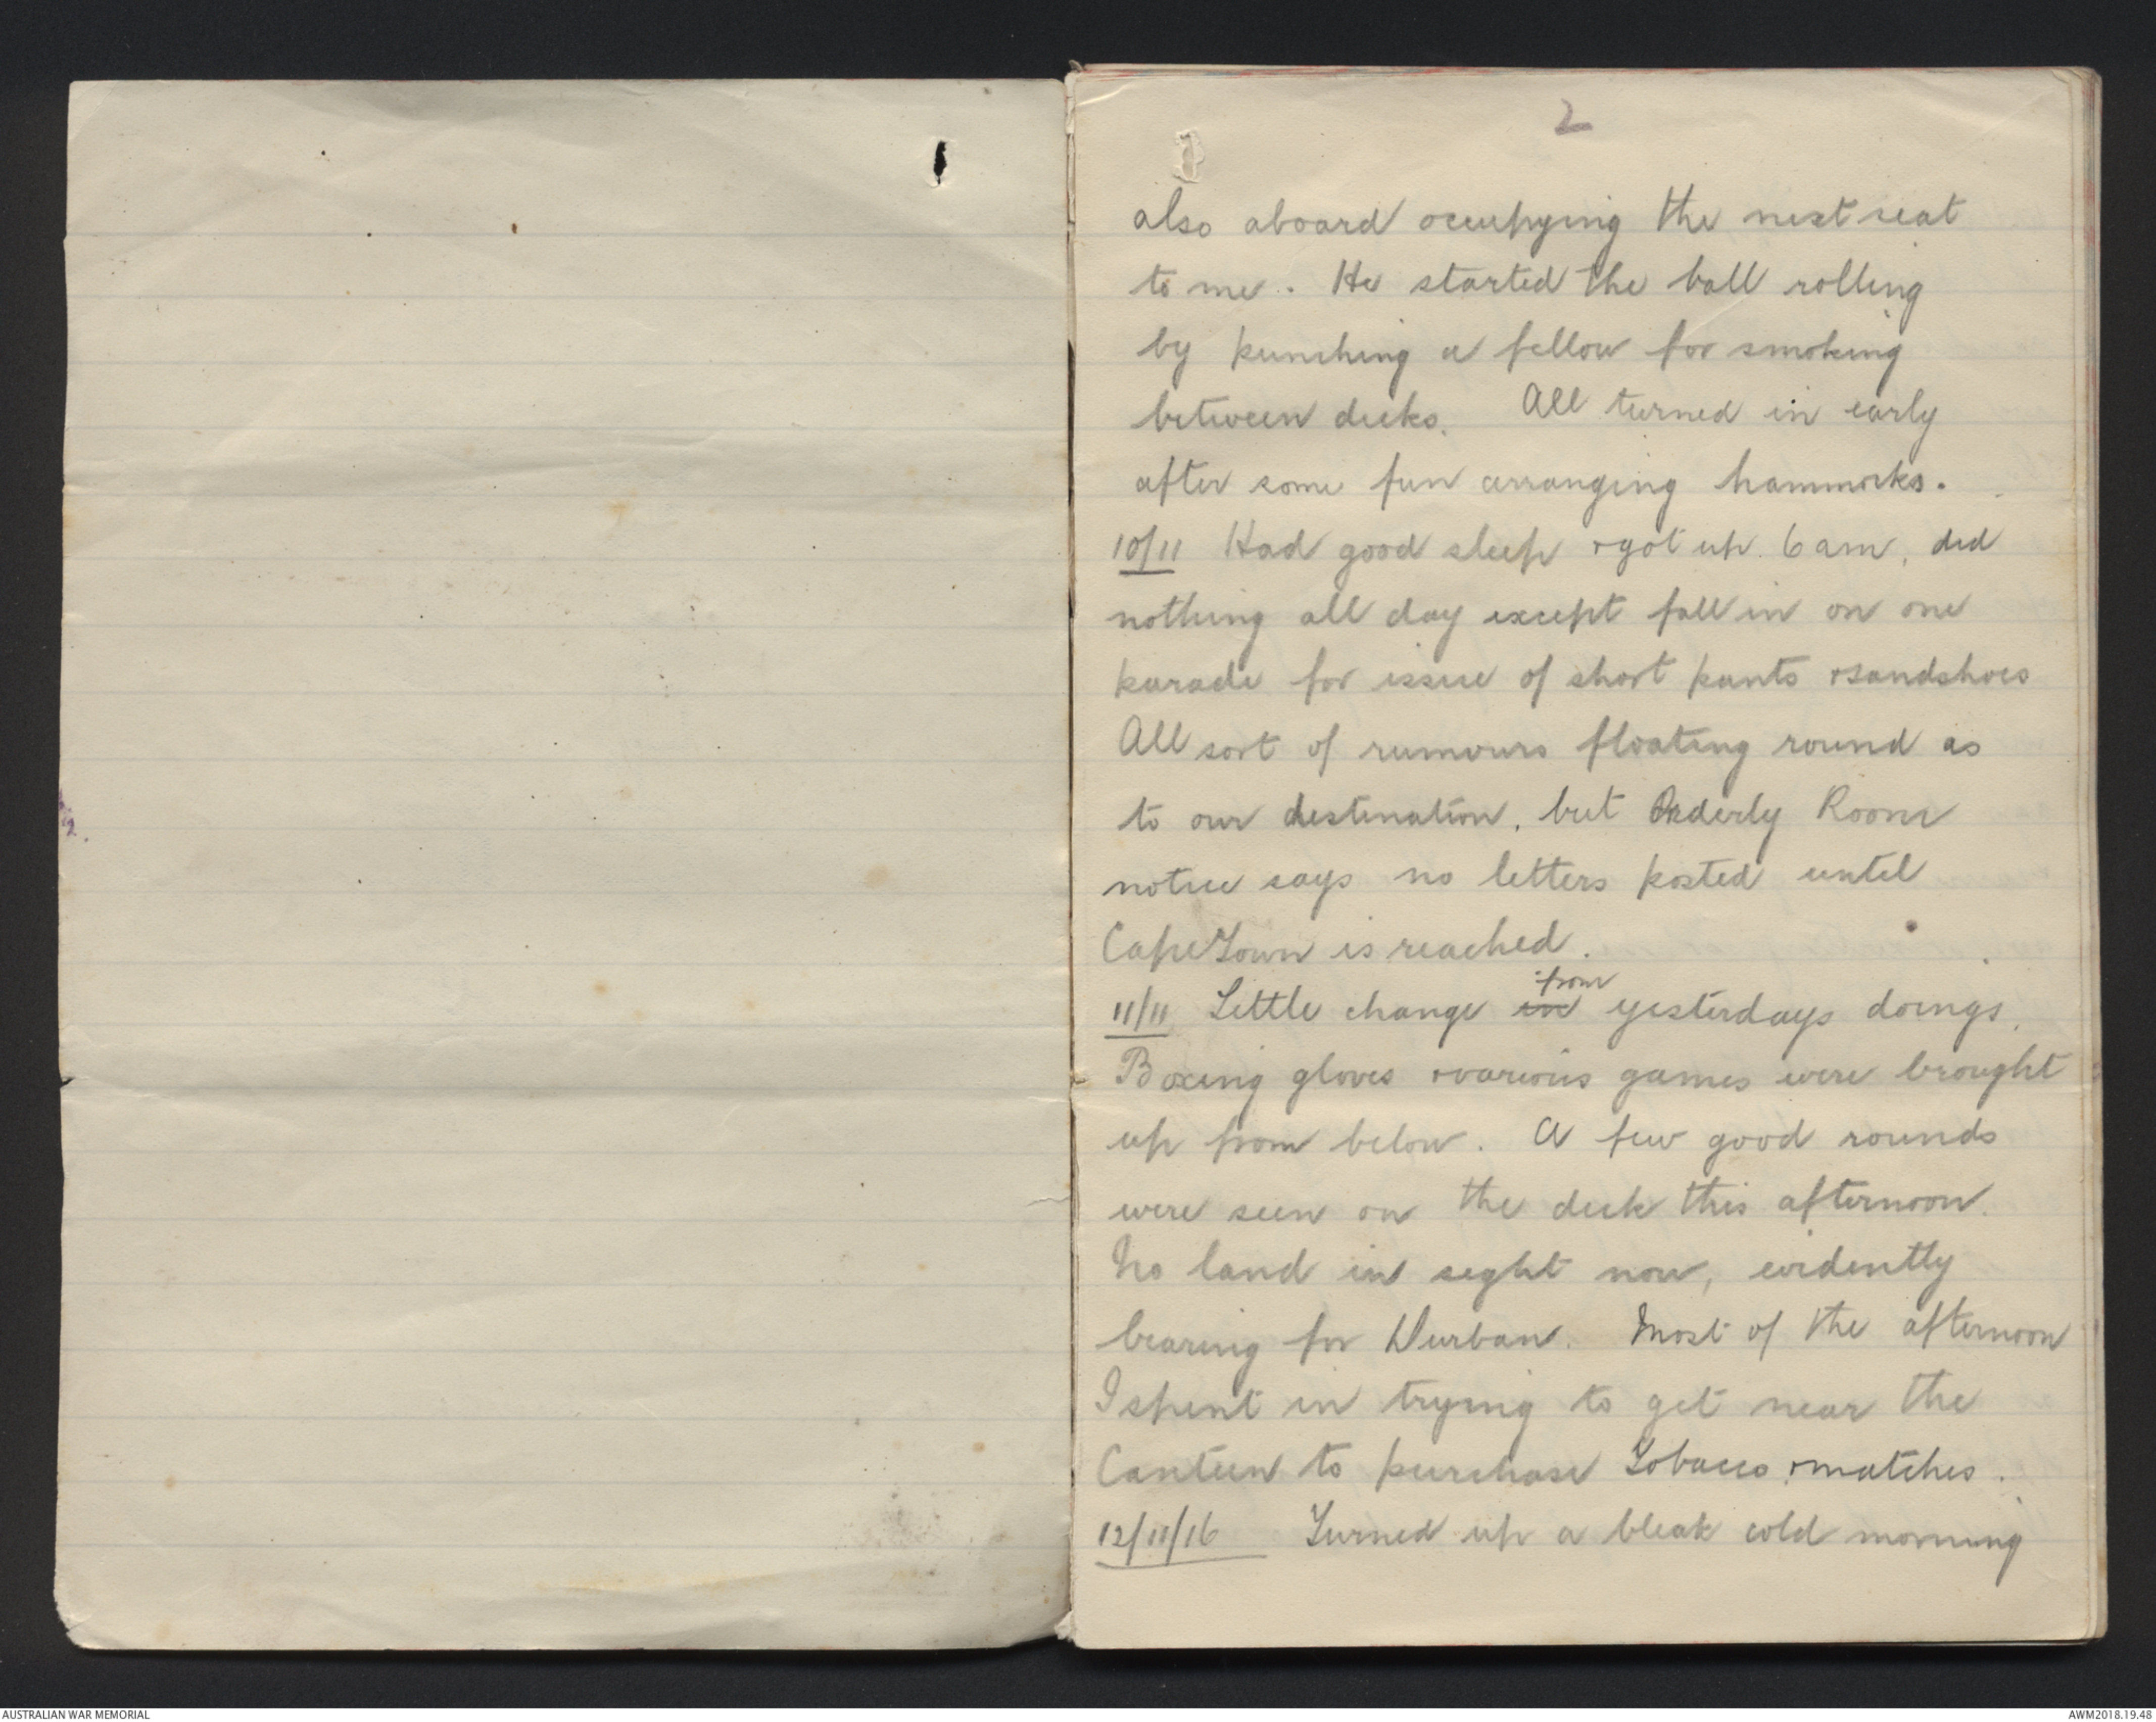 2
also aboard occupying the next seat
to me. He started the ball rolling
by punching a fellow for smoking
between decks. All turned in early
after some fun arranging hammocks.
10/11 Had good sleep & got up. 6 am, did
nothing all day except fall in on one
parade for issue of short pants & sandshoes
All sort of rumours floating round as
to our destination, but Orderly Room
notice says no letters posted until
CapeTown is reached.
from
11/11 Little change in yesterdays doings,
Boxing gloves & various games were brought
up from below. A few good rounds
were seen on the deck this afternoon.
No land in sight now, evidently
bearing for Durban. Most of the afternoon
I spent in trying to get near the
Canteen to purchase Tobacco & matches.
12/11/16 Turned up a bleak cold morning
2.
AUSTRALIAN WAR MEMORIAL
AWM2018.19.48